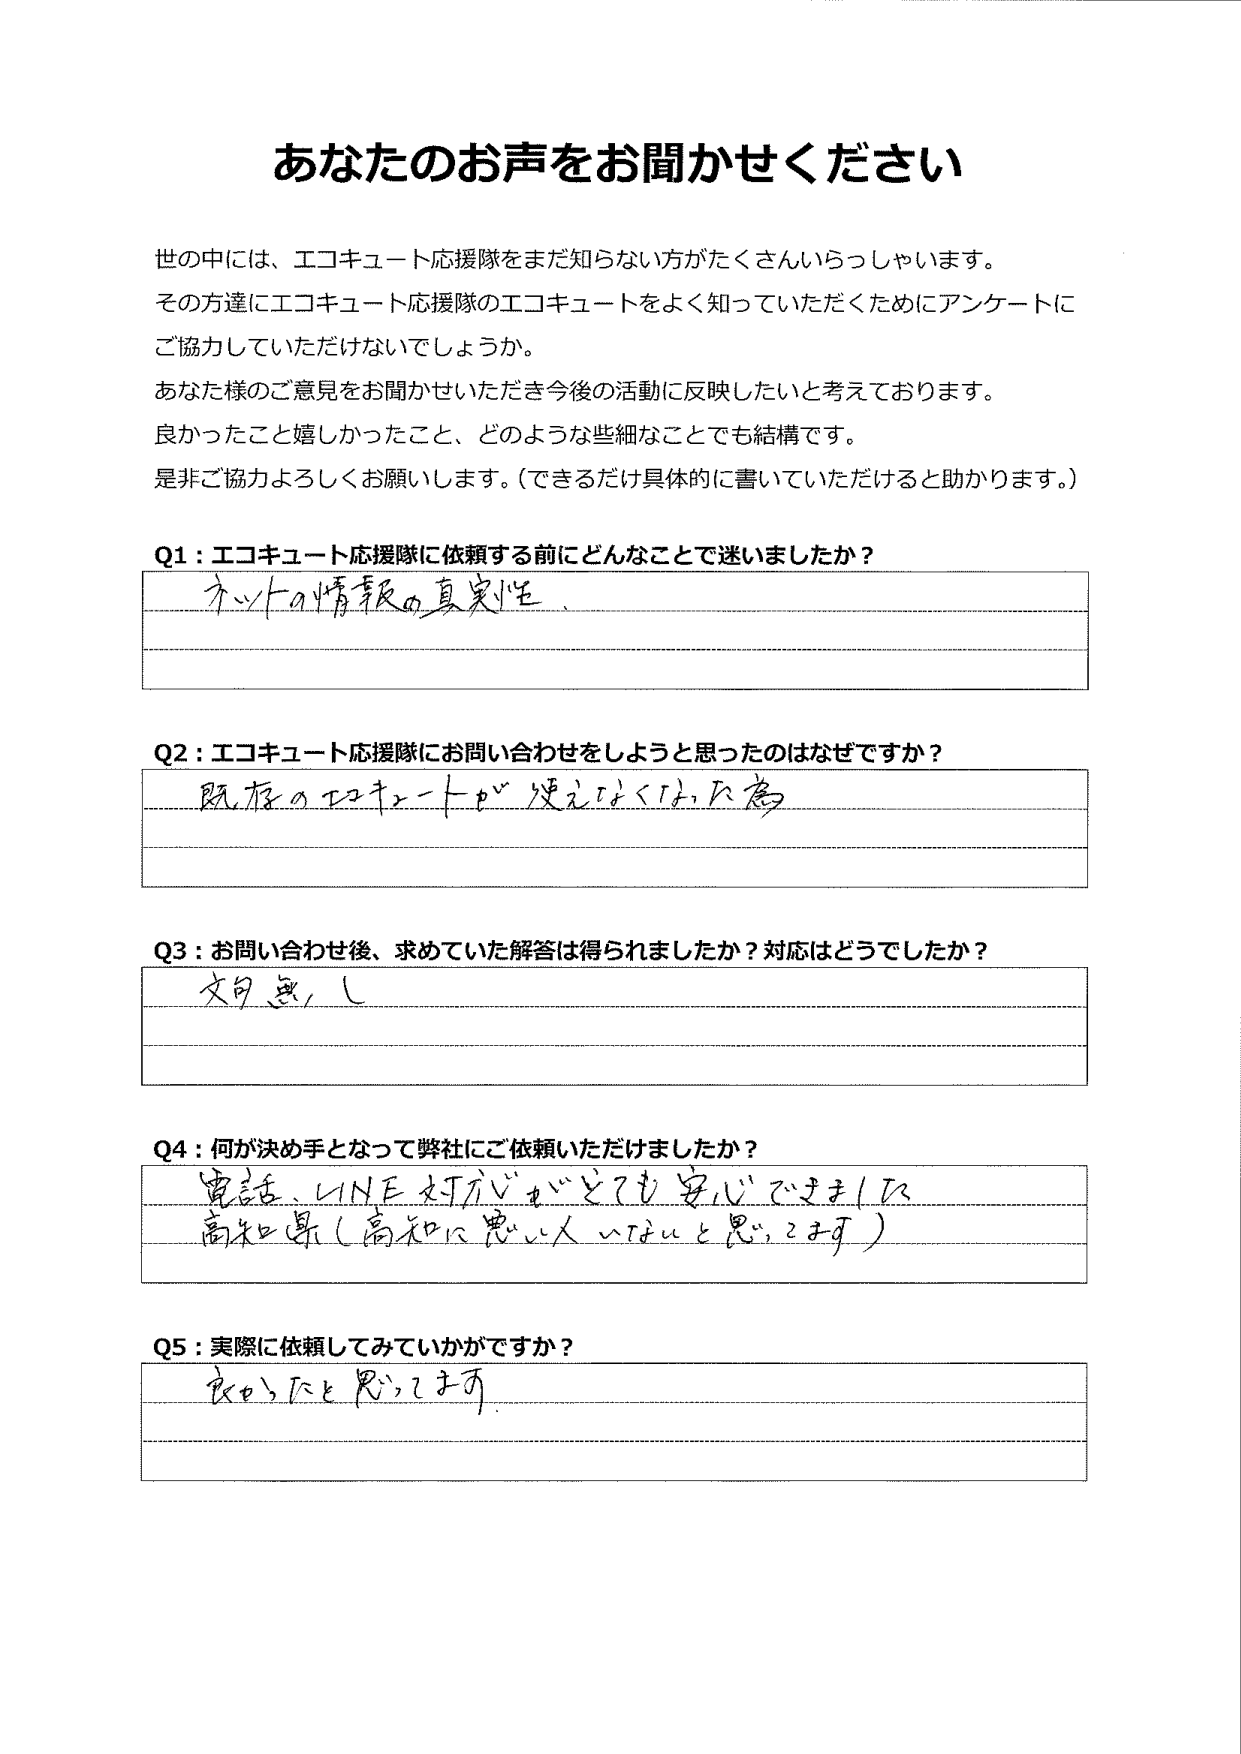 あなたのお声をお聞かせください
世の中には、エコキュート応援隊をまだ知らない方がたくさんいらっしゃいます。
その方達にエコキュート応援隊のエコキュートをよく知っていただくためにアンケートに
ご協力していただけないでしょうか。
あなた様のご意見をお聞かせいただき今後の活動に反映したいと考えております。
良かったこと嬉しかったこと、どのような些細なことでも結構です。
是非ご協力よろしくお願いします。（できるだけ具体的に書いていただけると助かります。）
Q1：エコキュート応援隊に依頼する前にどんなことで迷いましたか？
ネットの情報の真実性.
Q2：エコキュート応援隊にお問い合わせをしようと思ったのはなぜですか？
既存のエコキュートが使えなくなった為
Q3：お問い合わせ後、求めていた解答は得られましたか？対応はどうでしたか？
文句無し
Q4：何が決め手となって弊社にご依頼いただけましたか？
電話、LINE対応がとても安心できました
高知県（高知に悪い人いないと思ってます）
Q5：実際に依頼してみていかがですか？
良かったと思ってます.